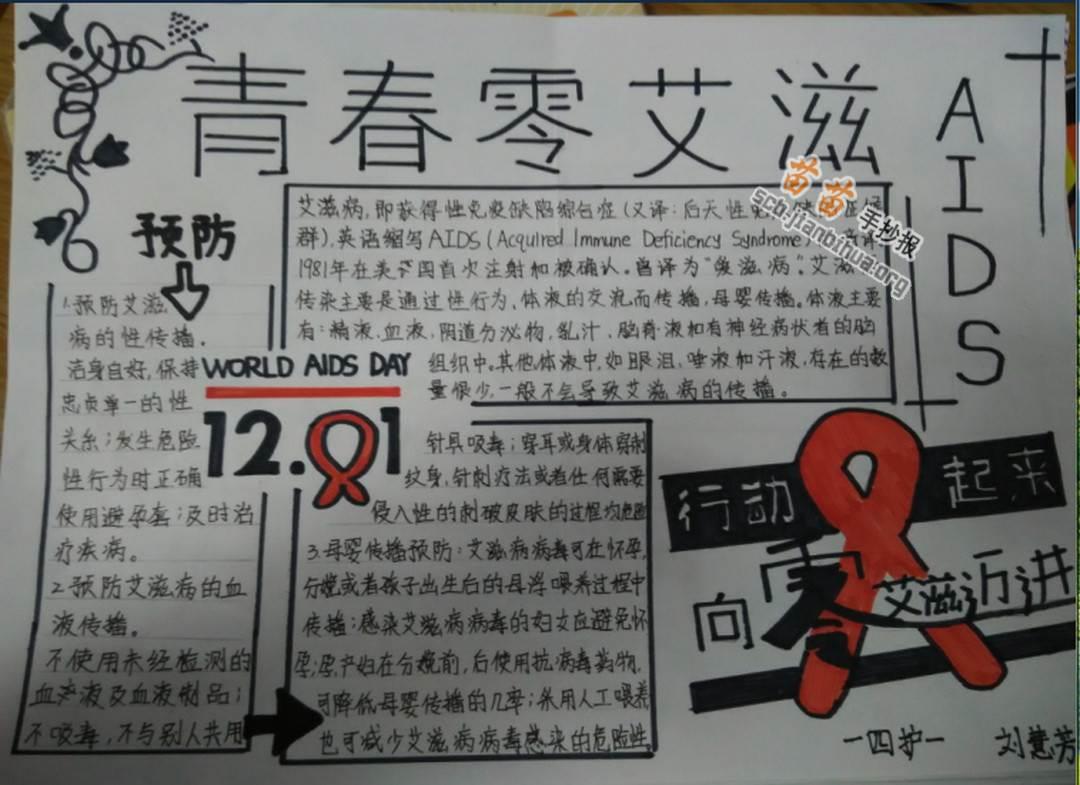 青春零艾滋
AIDS
艾滋病，即获得性免疫缺陷综合症（又译：后天性免
群），英语缩写AIDS（Acquired Immune Deficiency Syndrome）
1981年在美国首次注射和被确认。曾译为“爱滋病”。艾滋
传染主要是通过性行为、体液的交流而传播，母婴传播。体液主要
有：精液、血液、阴道分泌物、乳汁、脑脊液和有神经病状者的脑
组织中。其他体液中，如眼泪、唾液和汗液，存在的数
量很少，一般不会导致艾滋病的传播。
预防
1.预防艾滋
病的性传播。
洁身自好，保持
忠贞单一的性
关系；发生危险
性行为时正确
使用避孕套；及时治
疗疾病。
2.预防艾滋病的血
液传播。
不使用未经检测的
血液及血液制品；
不吸毒，不与别人共用
WORLD AIDS DAY
12.01
针具吸毒；穿耳或身体穿刺
纹身，针刺疗法或者任何需要
侵入性的刺破皮肤的过程均危险
3.母婴传播预防：艾滋病病毒可在怀孕，
分娩或者孩子出生后的母浮喂养过程中
传播；感染艾滋病病毒的妇女应避免怀
孕；孕产妇在分娩前，后使用抗病毒药物，
可降低母婴传播的几率；采用人工喂养
也可减少艾滋病病毒感染的危险性
行动起来
向零艾滋迈进
一四护一 刘慧芳
苗苗手抄报
scb.jianbihua.org